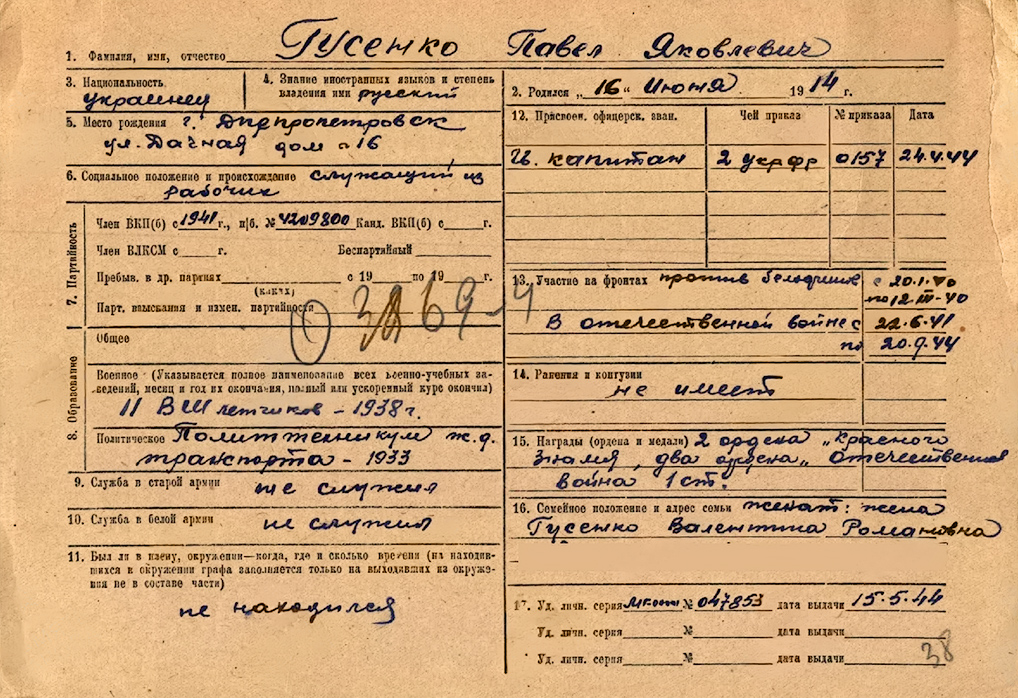 1. Фамилия, имя, отчество Гусенко Павел Яковлевич
3. Национальность
украинец
4. Знание иностранных языков и степень
владения ими русский
5. Место рождения г. Днепропетровск
ул. Дачная дом 16
6. Социальное положение и происхождение служащий из
рабочих
7. Партийность
Член ВКП(б) с 1941 г., п/б. № 4209800 Канд. ВКП(б) с г.
Член ВЛКСМ с г. Беспартийный
Пребыв. в др. партиях с 19 по 19 г.
(каких)
Парт. взыскания и измен. партийности
8. Образование
Общее
Военное (Указывается полное наименование всех военно-учебных за-
ведений, месяц и год их окончания, полный или ускоренный курс окончил)
11 ВШ летчиков - 1938 г.
Политическое Политтехникум ж.д.
транспорта - 1933
9. Служба в старой армии не служил
10. Служба в белой армии не служил
11. Был ли в плену, окружении—когда, где и сколько времени (на находив-
шихся в окружении графа заполняется только на выходивших из окруже-
ния не в составе части)
не находился
2. Родился „16“ Июня 1914 г.
12. Присвоен. офицерск. зван. Чей приказ № приказа Дата
Ц. капитан 2 укр фр 0157 24.4.44
13. Участие на фронтах против белофинов с 20.1.40
по 12.III-40
В отечественной войне с 22.6.41
по 20.9.44
14. Ранения и контузии
не имеет
15. Награды (ордена и медали) 2 ордена „Красного
Знамя, два ордена „отечественная
война 1 ст.
16. Семейное положение и адрес семьи женат: жена
Гусенко Валентина Романовна
17. Уд. личн. серия № 047853 дата выдачи 15.5.44
Уд. личн. серия № дата выдачи
Уд. личн. серия № дата выдачи
38